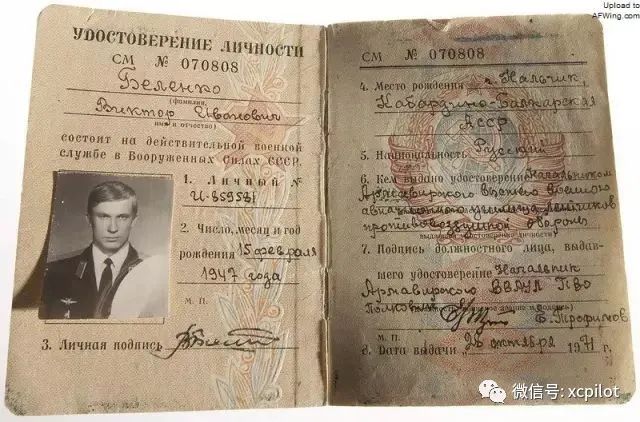 Upload to
AFWing.com
УДОСТОВЕРЕНИЕ ЛИЧНОСТИ
СМ № 070808
Беленко
(фамилия,
Виктор Иванович
имя и отчество)
состоит на действительной военной
службе в Вооруженных Силах СССР.
1. Личный №
И-859581
2. Число, месяц и год
рождения 15 февраля
1947 года
М. П.
3. Личная подпись
СМ № 070808
4. Место рождения г. Нальчик,
Кабардино-Балкарская
АССР
5. Национальность Русский
6. Кем выдано удостоверение Начальником
Армавирского высшего военного
авиационного училища летчиков
противовоздушной обороны
7. Подпись должностного лица, выдав-
шего удостоверение Начальник
Армавирского ВВАУЛ ПВО
Полковник Трофимов
М. П.
8. Дата выдачи 26 октября 1971 г.
微信号: xcpilot